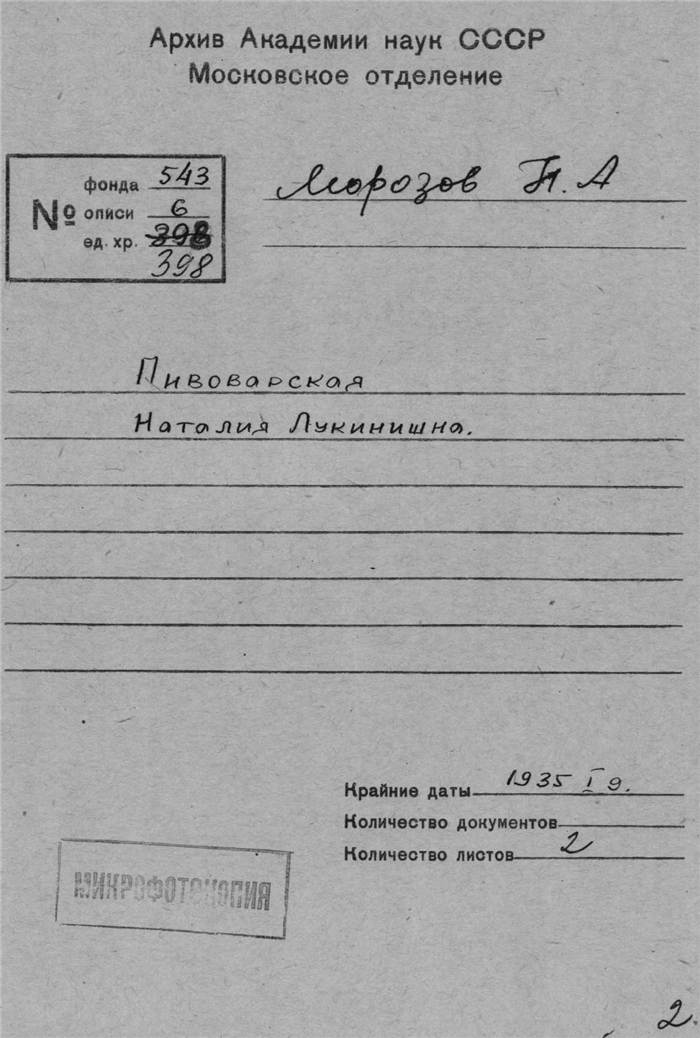 Архив Академии наук СССР
Московское отделение
№
фонда 543
описи 6
ед. хр. 398
398
Морозов Н. А
Пивоварская
Наталия Лукинишна.
Крайние даты 1935 I 9.
Количество документов
Количество листов 2
МИКРОФОТОКОПИЯ
2.